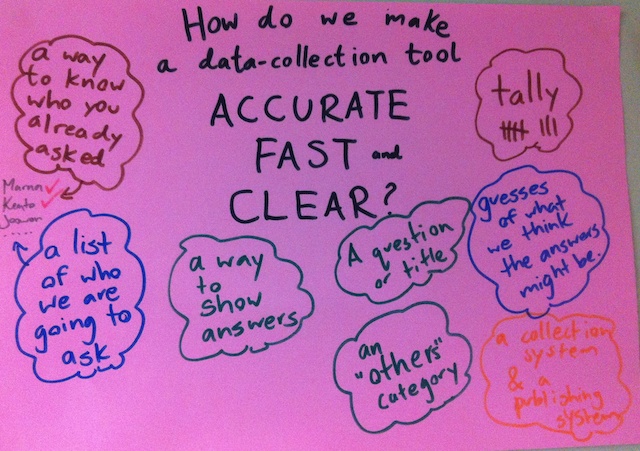 How do we make
a data-collection tool
ACCURATE
FAST and
CLEAR?
a way
to know
who you
already
asked
tally
Kento
a list
of who
we are
going to
ask
a way
to
show
answers
A question
or title
guesses
of what
we think
the answers
might be.
an
"others"
category
a collection
system
& a
publishing
system